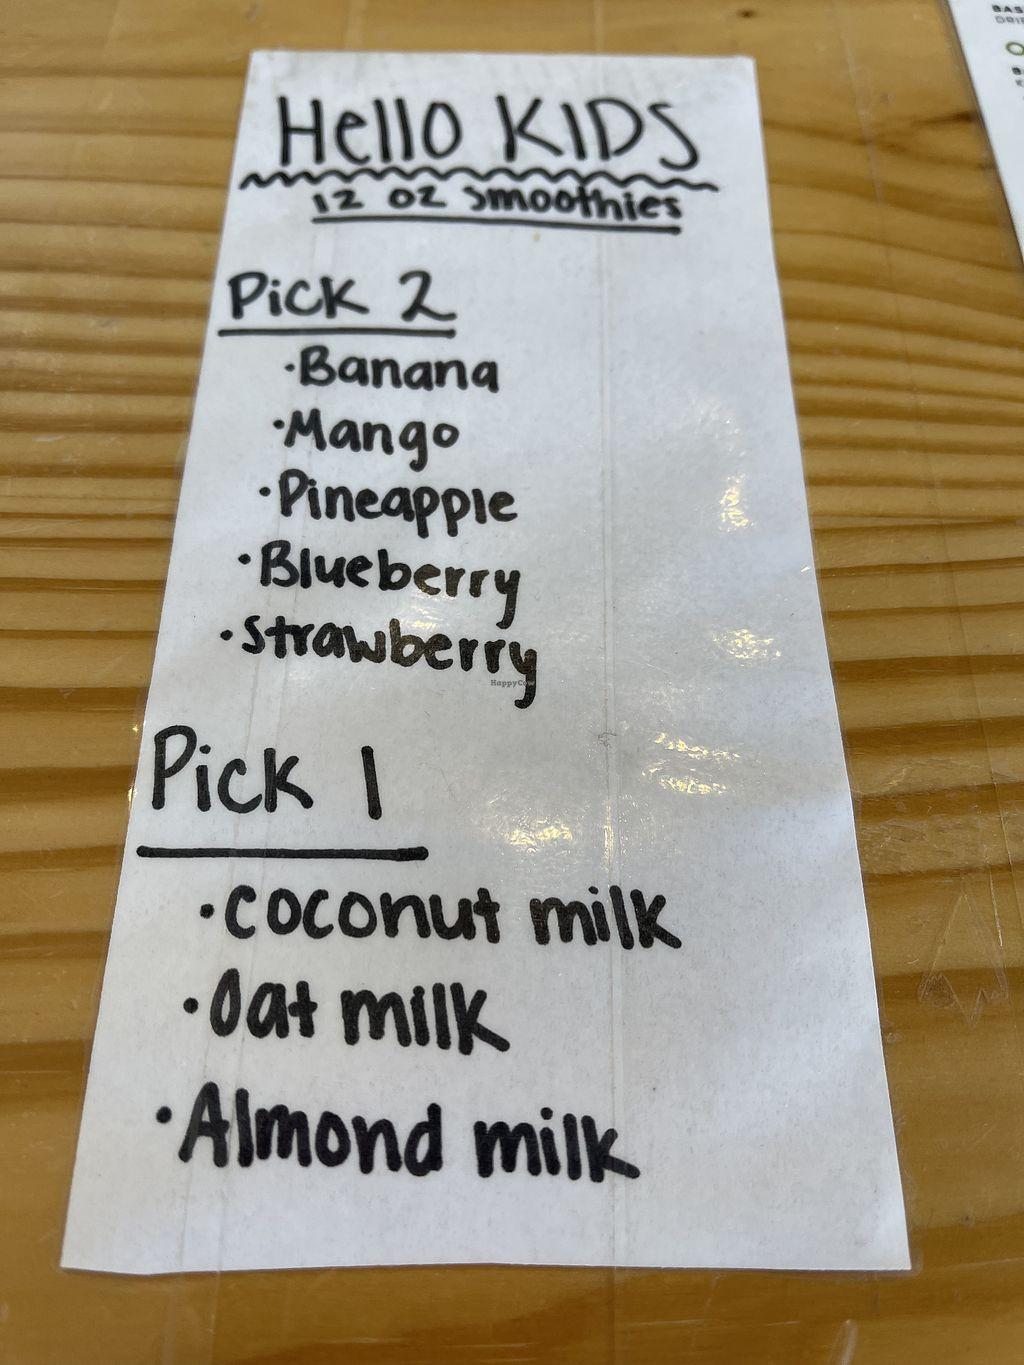 Hello KIDS
12 oz smoothies
Pick 2
·Banana
·Mango
·Pineapple
·Blueberry
·strawberry
HappyCow
Pick 1
·coconut milk
·Oat milk
·Almond milk